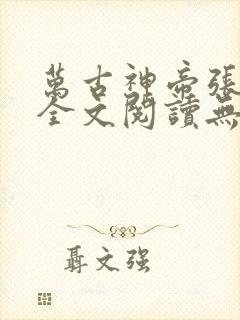 萬古神帝張
全文閱讀無
聶文强